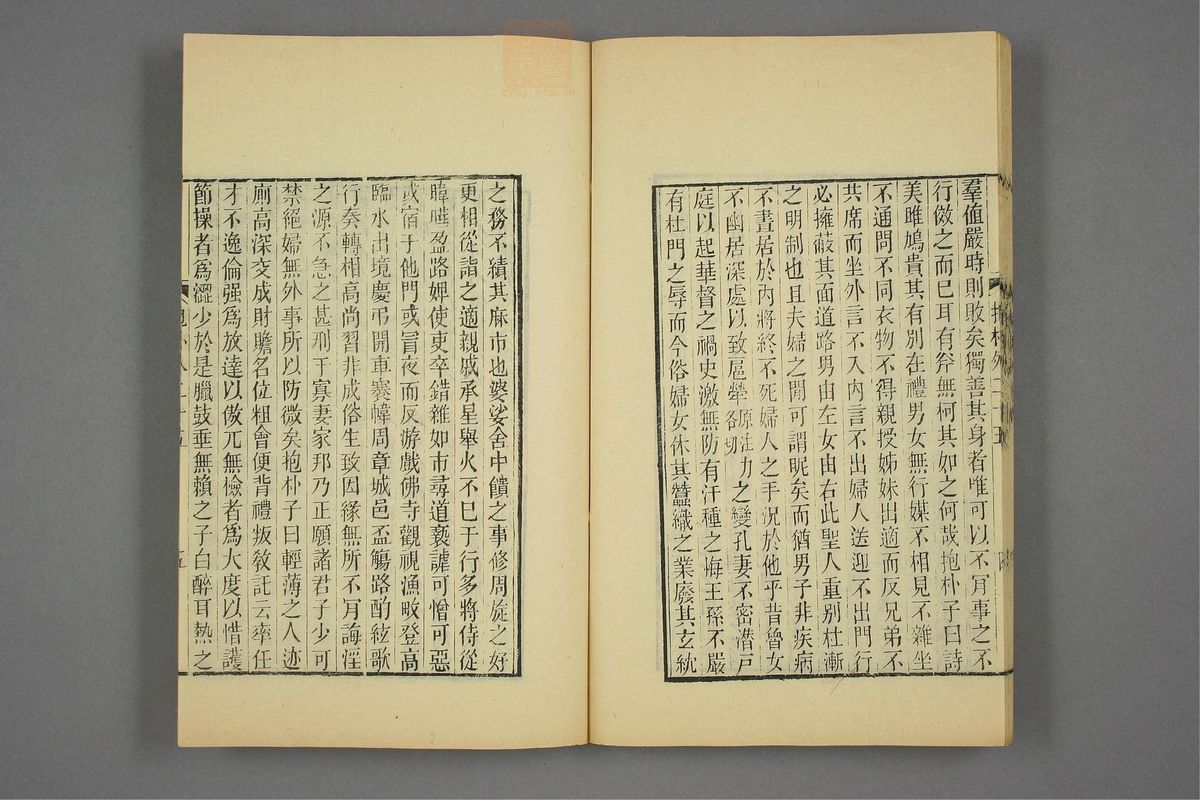 羣値嚴時則敗矣獨善其身者唯可以不肎事之不
行傚之而已耳有斧無柯其如之何哉抱朴子曰詩
美雎鳩貴其有別在禮男女無行媒不相見不雜坐
不通問不同衣物不得親授姊妹出適而反兄弟不
共席而坐外言不入內言不出婦人送迎不出門行
必擁蔽其面道路男由左女由右此聖人重別杜漸
之明制也且夫婦之閒可謂昵矣而猶男子非疾病
不晝居於內將終不死婦人之手況於他乎昔魯女
不幽居深處以致扈犖原注力各切之變孔妻不密潛戶
庭以起華督之禍史激無防有汙種之悔王孫不嚴
有杜門之辱而今俗婦女休其蠶織之業廢其玄紞
之務不績其麻市也婆娑舍中饋之事修周旋之好
更相從詣之適親戚承星舉火不已于行多將侍從
暐曄盈路婢使吏卒錯雜如市尋道褻謔可憎可惡
或宿于他門或冒夜而反游戲佛寺觀視漁畋登高
臨水出境慶弔開車褰幃周章城邑盃觴路酌絃歌
行奏轉相高尚習非成俗生致因緣無所不肎誨淫
之源不急之甚刑于寡妻家邦乃正願諸君子少可
禁絕婦無外事所以防微矣抱朴子曰輕薄之人迹
廁高深交成財贍名位粗會便背禮叛敎託云率任
才不逸倫强爲放達以傲兀無檢者爲大度以惜護
節操者爲澀少於是臘鼓垂無賴之子白醉耳熱之
五